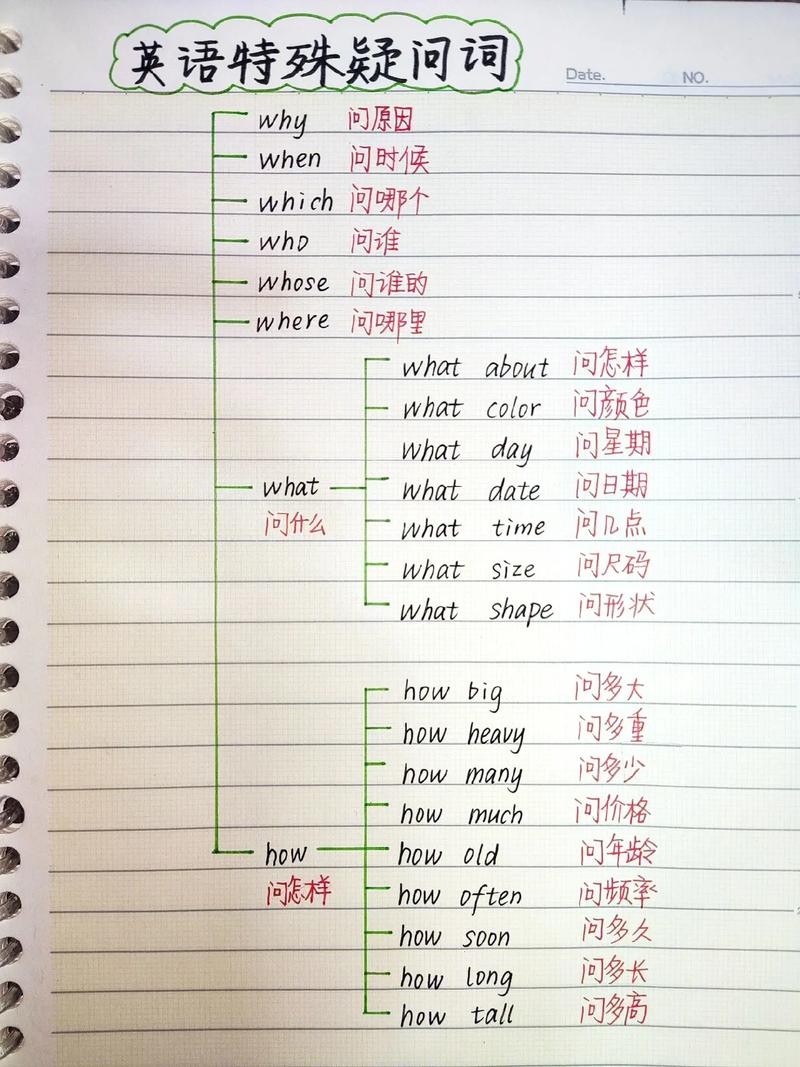 英语特殊疑问词
Date. NO.
why 问原因
when 问时候
which 问哪个
who 问谁
whose 问谁的
where 问哪里
what about 问怎样
what color 问颜色
what day 问星期
what
问什么
what date 问日期
what time 问几点
what size 问尺码
what shape 问形状
how big 问多大
how heavy 问多重
how many 问多少
how much 问价格
how
问怎样
how old 问年龄
how often 问频率
how soon 问多久
how long 问多长
how tall 问多高